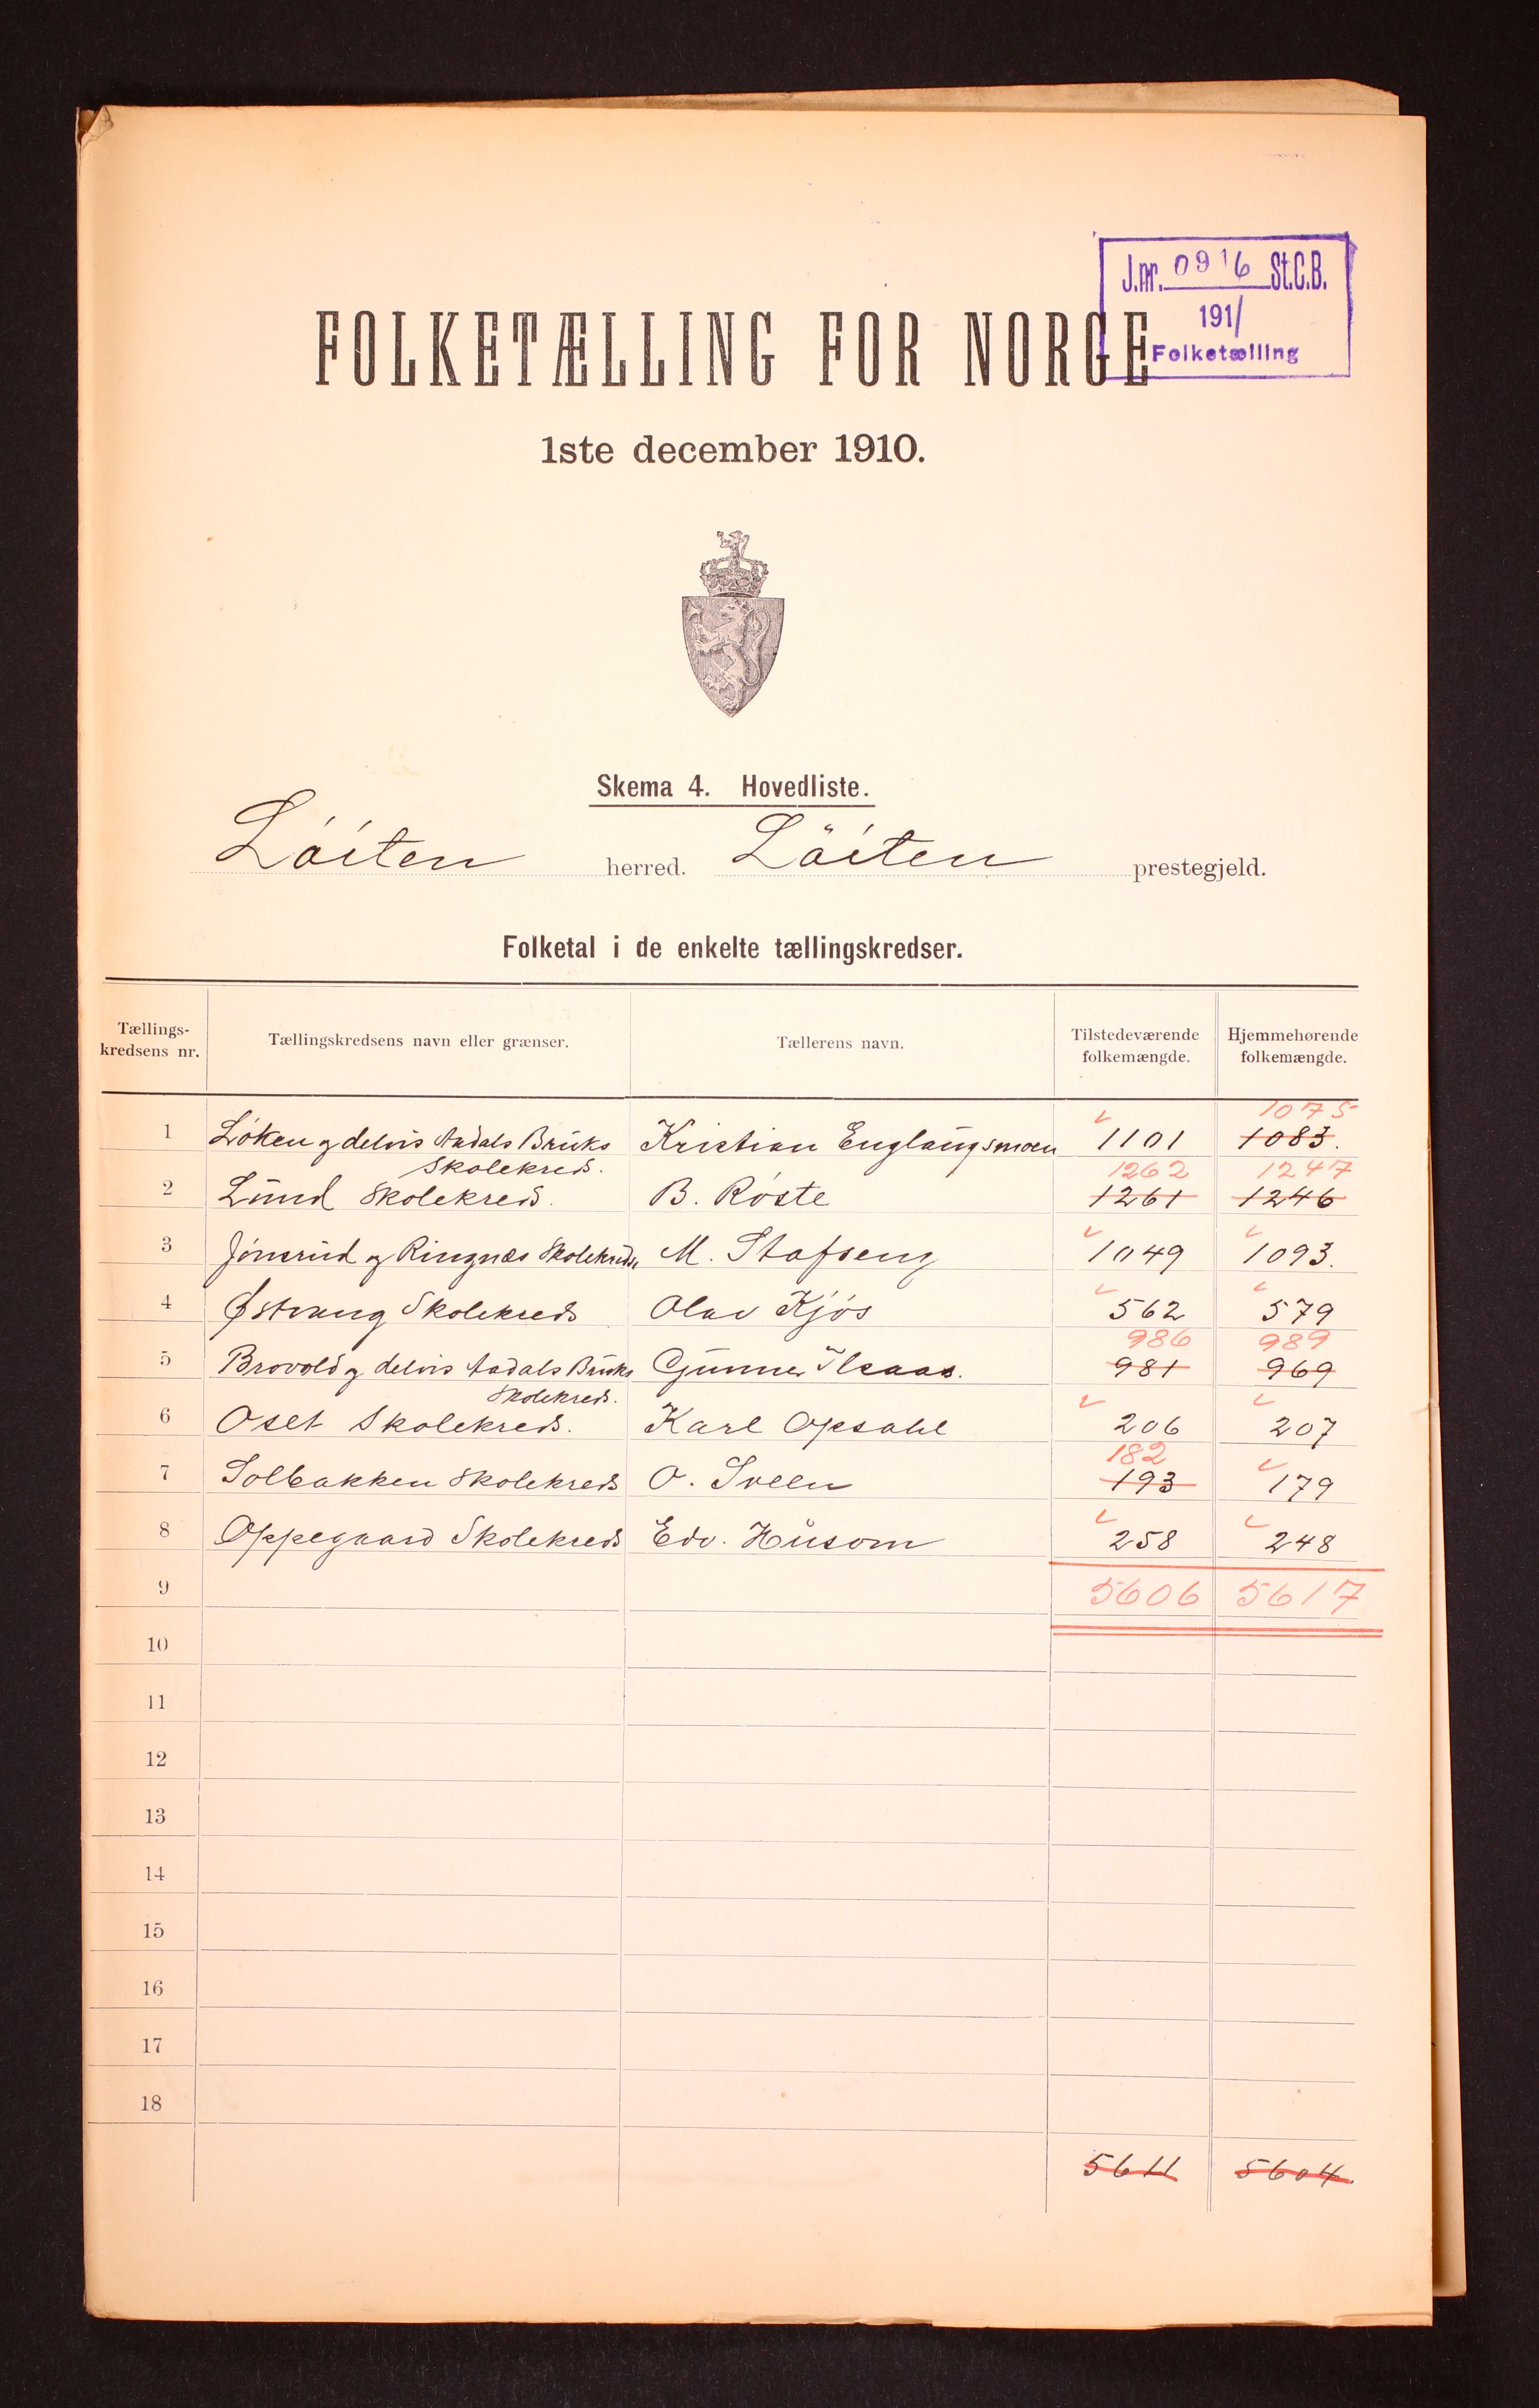 J.nr. 0916 St.C.B.
191/
Folketælling
FOLKETÆLLING FOR NORGE
1ste december 1910.
Skema 4. Hovedliste.
Löiten herred. Löiten prestegjeld.
Folketal i de enkelte tællingskredser.
Tællings-kredsens nr. Tællingskredsens navn eller grænser. Tællerens navn. Tilstedeværende folkemængde. Hjemmehørende folkemængde.
1075
1 Löken og delvis Aadals Bruks Kristian Englaugsmoen 1101 1083.
Skolekreds. 1262 1247
2 Lund Skolekreds. B. Röste 1261 1246
3 Jönsrud og Ringnæs Skolekredse M. Stafseng 1049 1093.
4 Østvang Skolekreds Olav Kjös 562 579
986 989
5 Brovold og delvis Aadals Bruks Gunner Ilsaas. 981 969
Skolekreds.
6 Oset Skolekreds. Karl Opsahl 206 207
182
7 Solbakken Skolekreds O. Sveen 193 179
8 Oppegaard Skolekreds Edv. Husom 258 248
9 5606 5617
10
11
12
13
14
15
16
17
18
5611 5604.